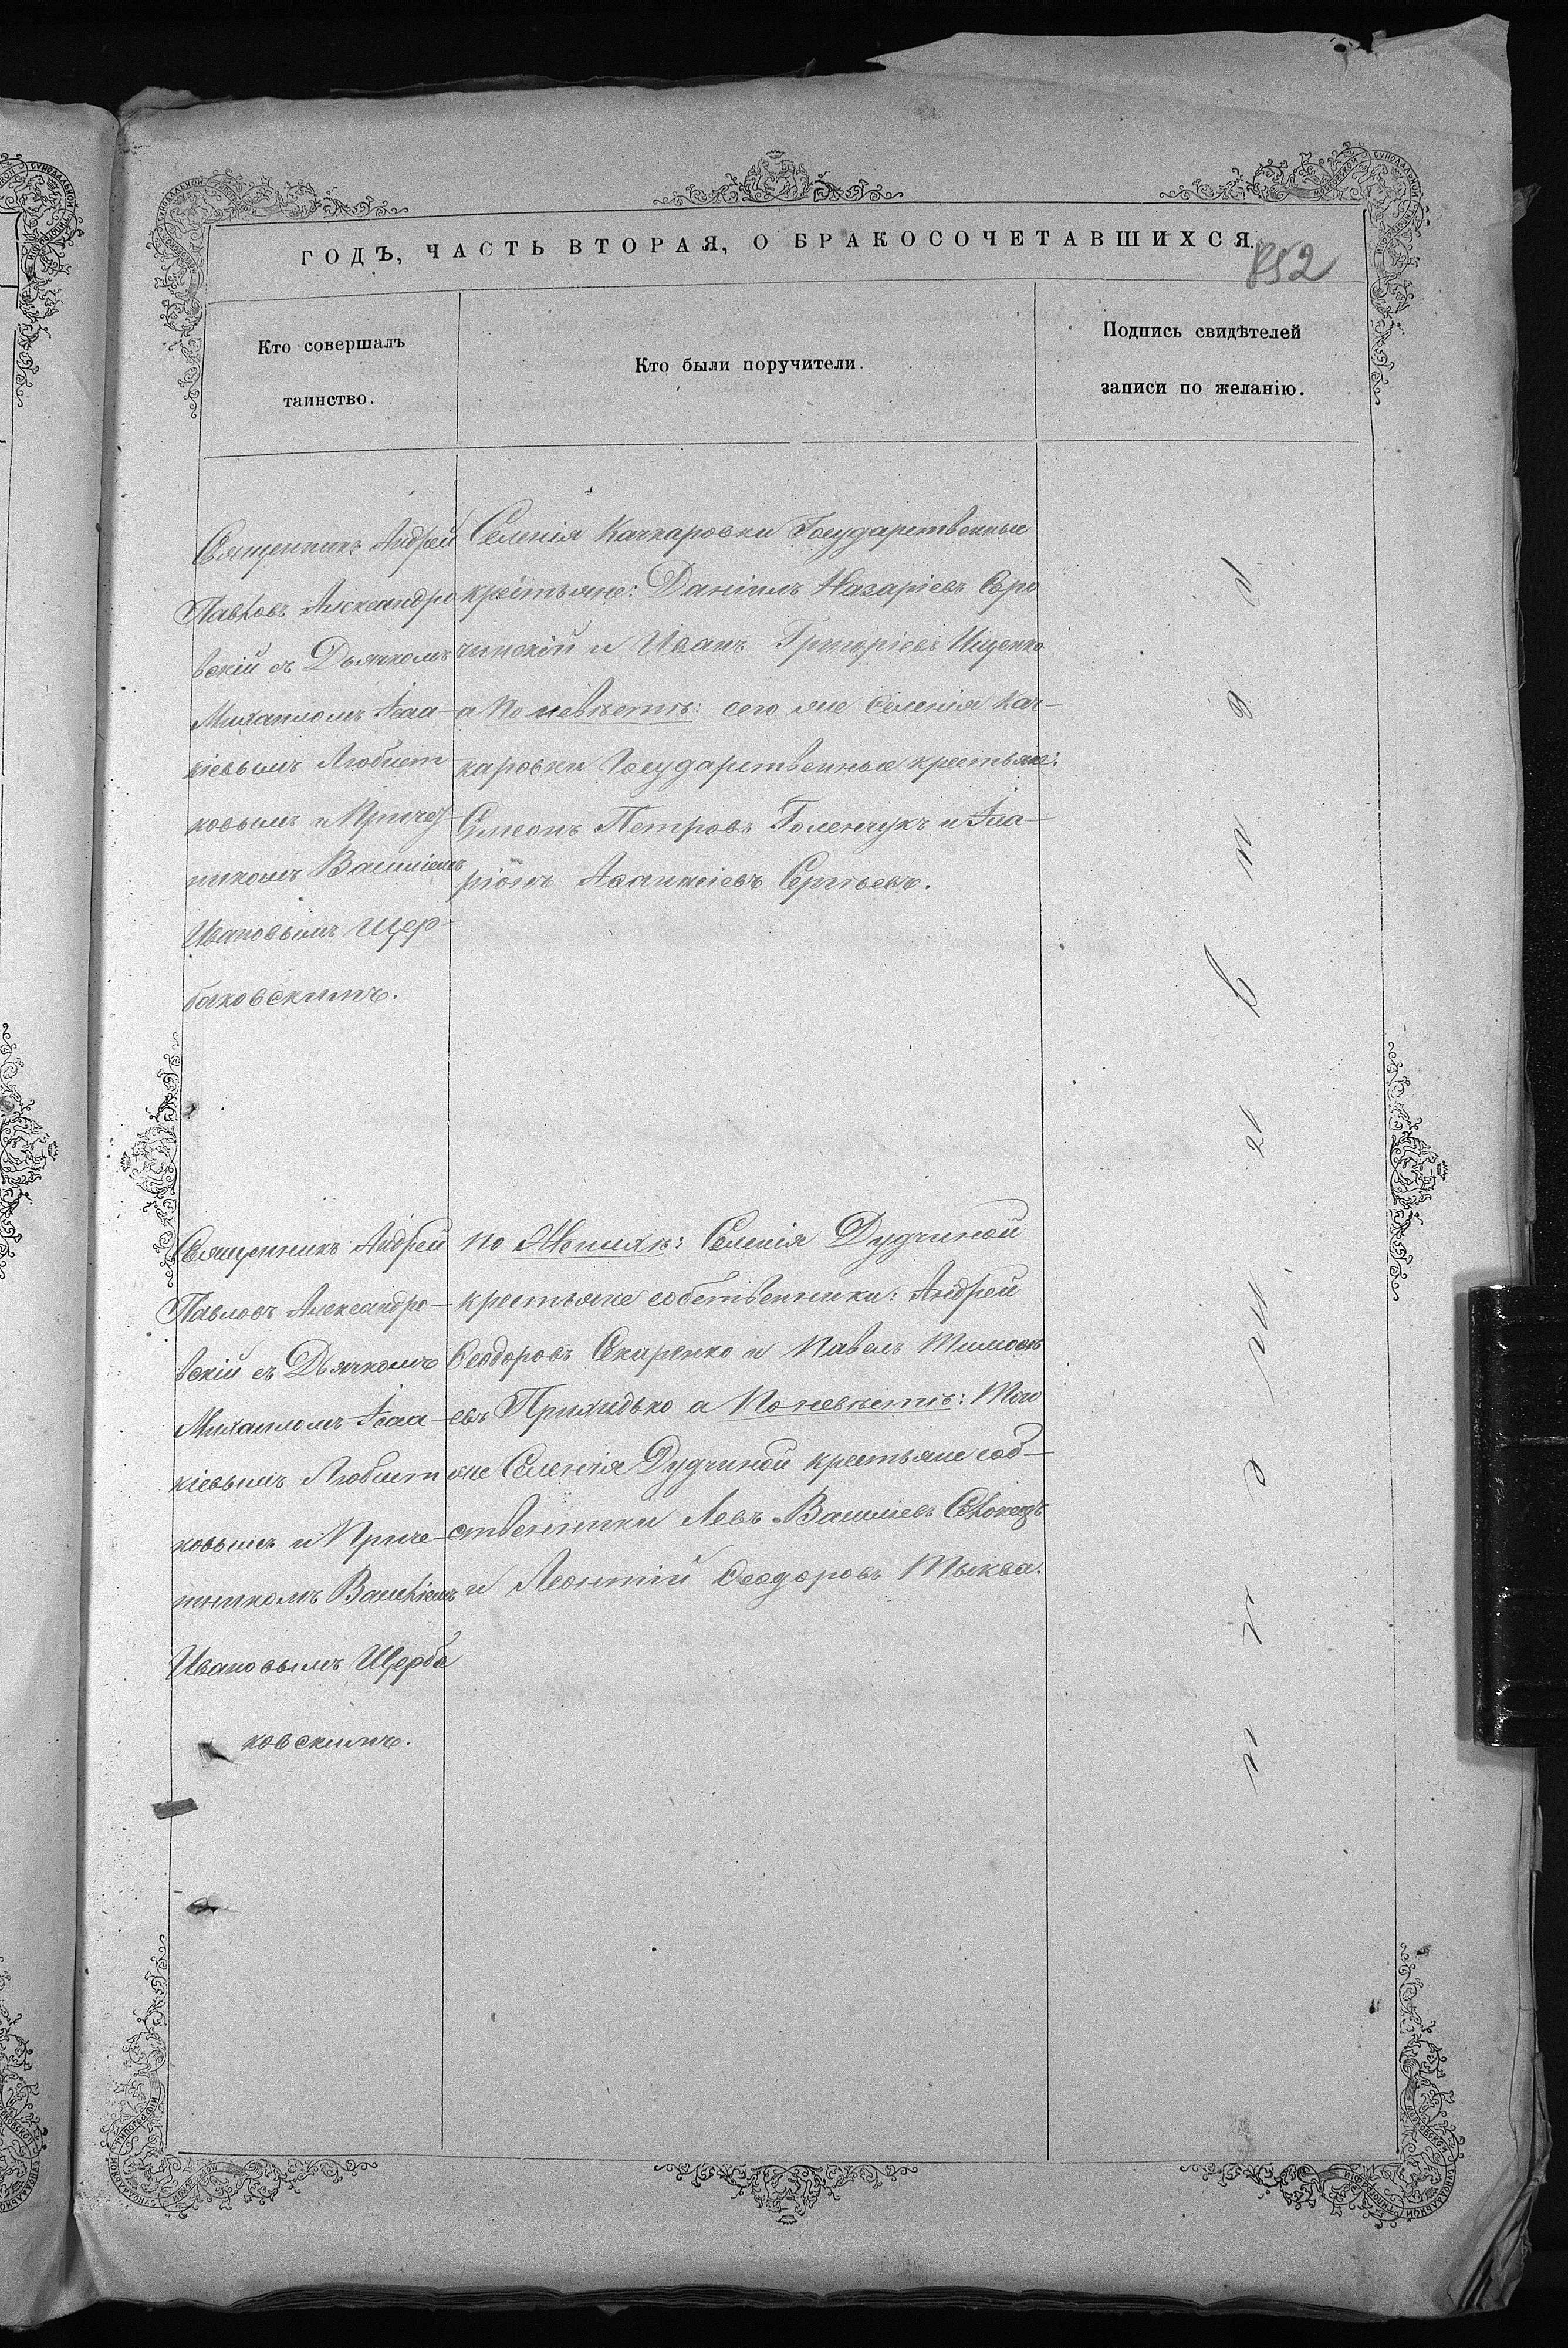 ГОДЪ, ЧАСТЬ ВТОРАЯ, О БРАКОСОЧЕТАВШИХСЯ.
852
Кто совершалъ
таинство.
Кто были поручители.
Подпись свидѣтелей
записи по желанію.
Священникъ Андрей
Павловъ Александро
вскій съ Дьячкомъ
Михаиломъ Исаа-
кіевымъ Любист
ковымъ и Причет
никомъ Василіемъ
Ивановымъ Щер-
баковскимъ.
Селенія Качкаровки Государственные
крестьяне: Даніилъ Назаріевъ Соро
чинскій и Иванъ Григоріевъ Ищенко
а по невѣстѣ: сего же Селенія Кач-
каровки Государственные крестьяне:
Сѵмеонъ Петровъ Голенчукъ и Ила-
ріонъ Аѳанасіевъ Сергѣевъ.
Священникъ Андрей
Павловъ Александро-
вскій съ Дьячкомъ
Михаиломъ Исаа-
кіевымъ Любист
ковымъ и Приче-
тникомъ Василіемъ
Ивановымъ Щерба
ковскимъ.
по Женихѣ: Селенія Дудчиной
крестьяне собственники: Андрей
Ѳеодоровъ Скаренко и Павелъ Тимоѳѣ
евъ Приходько а по невѣстѣ: того
же Селенія Дудчиной крестьяне соб-
ственники Левъ Василіевъ
и Леонтій Ѳеодоровъ Тыква.